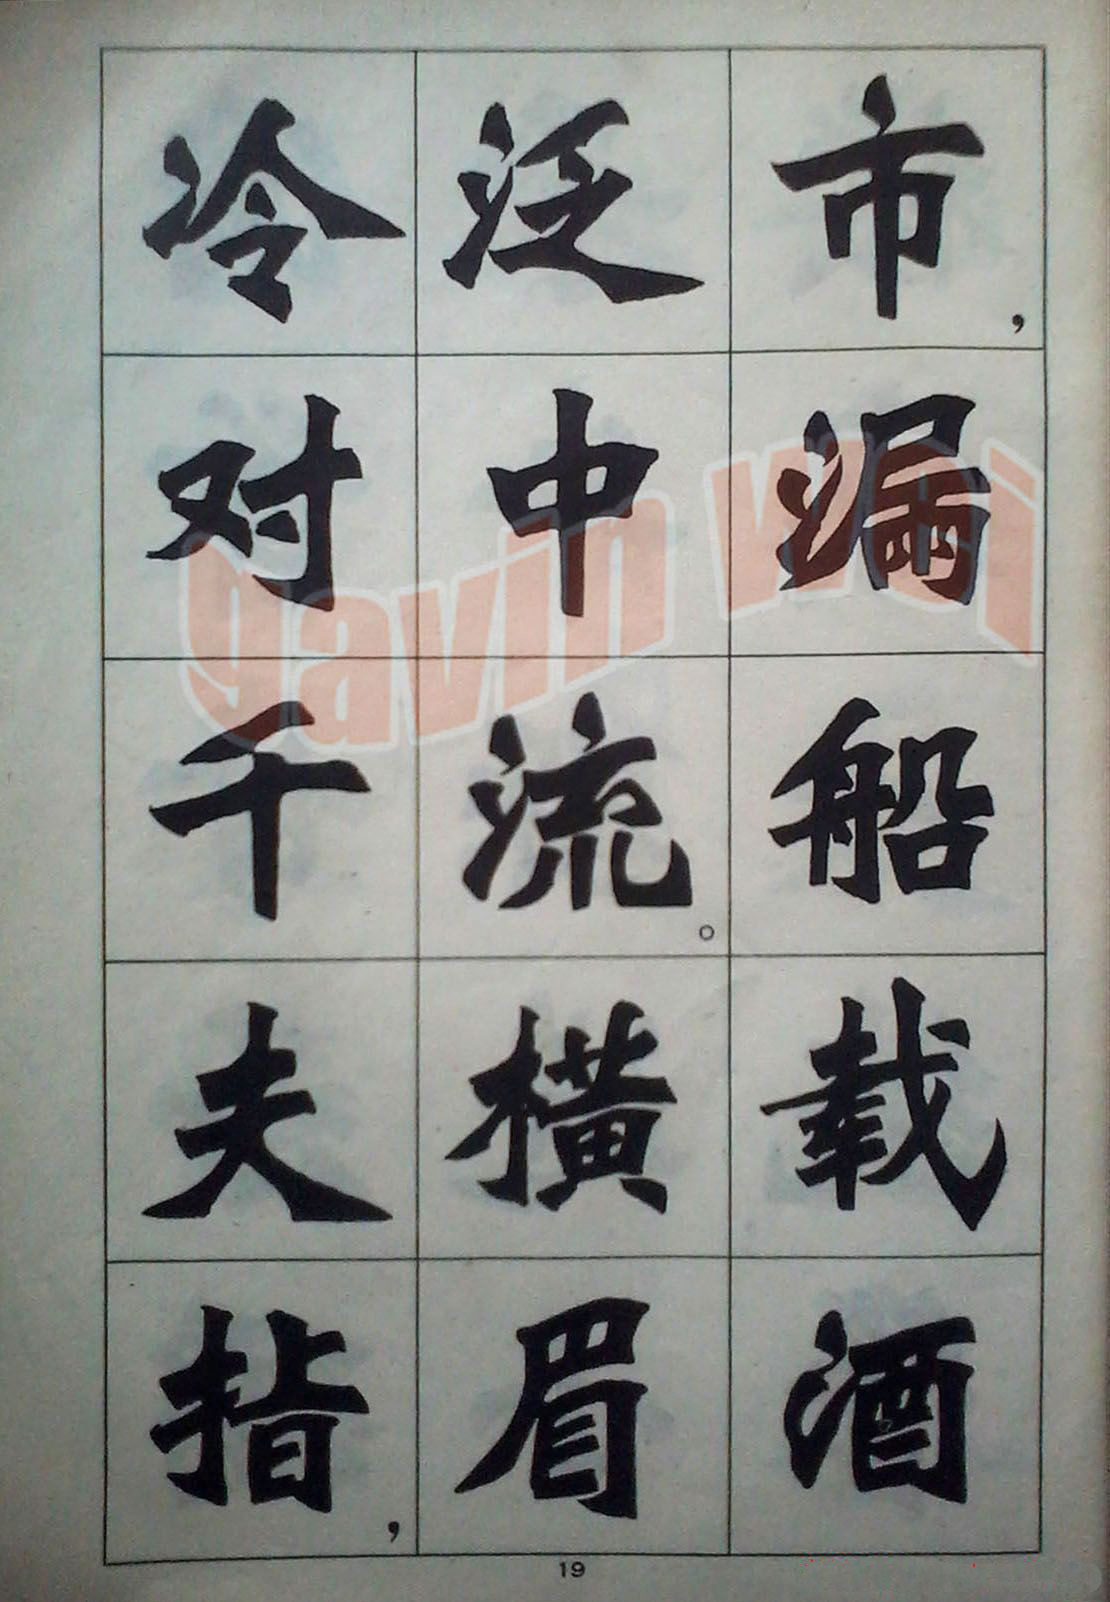 市，漏船载酒
泛中流。横眉
冷对千夫指，
19
gavin wei